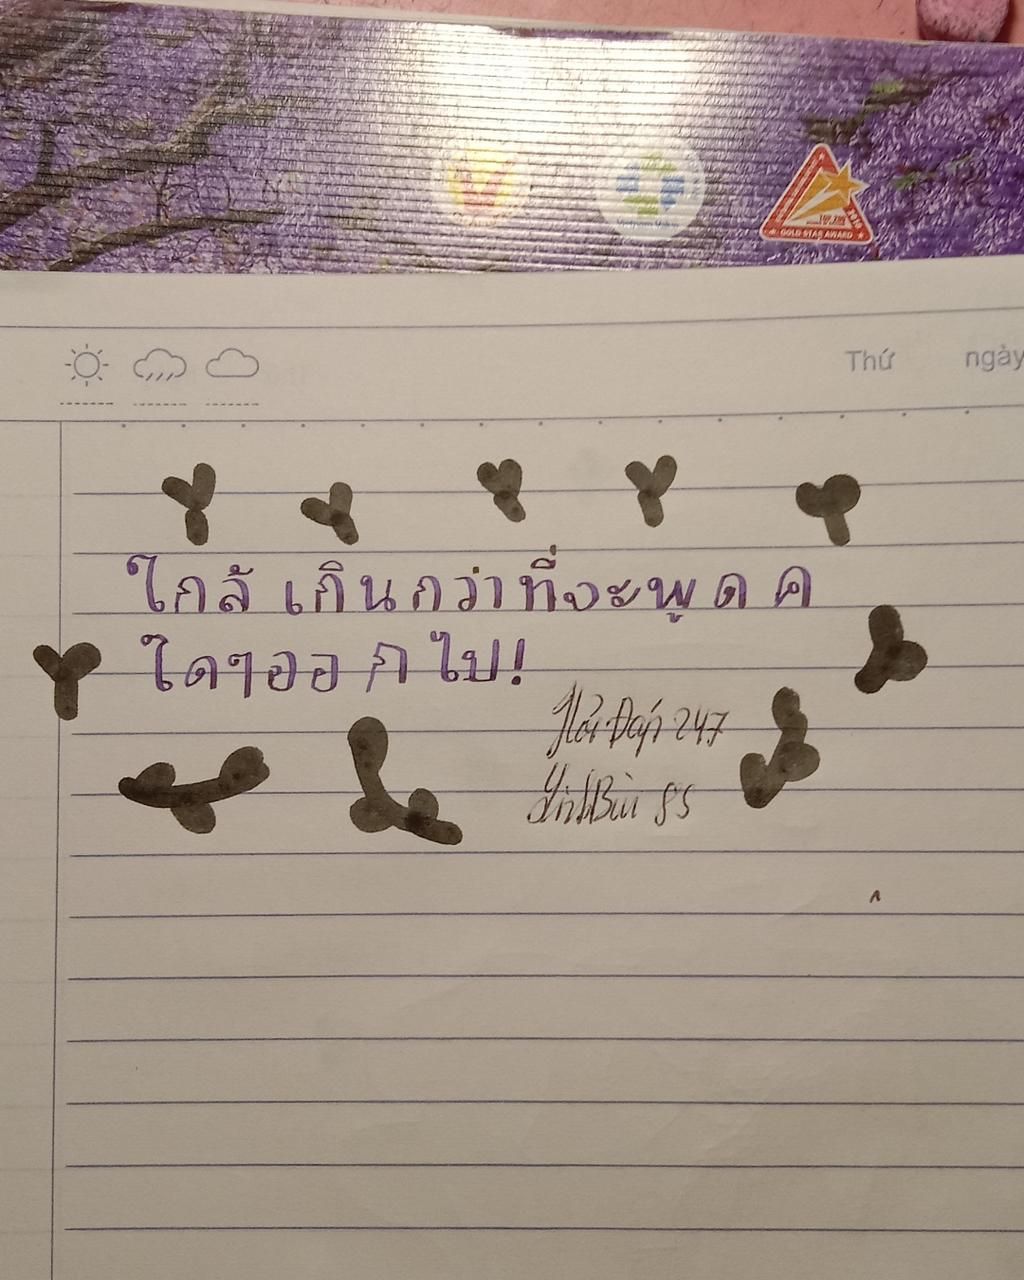 GOLD STAR AWARD
Thứ ngày
ใกล้ เกินกว่าที่จะพูด ค
ใดๆออ กไป!
Hỏi Đáp 247
LinhBùi 85